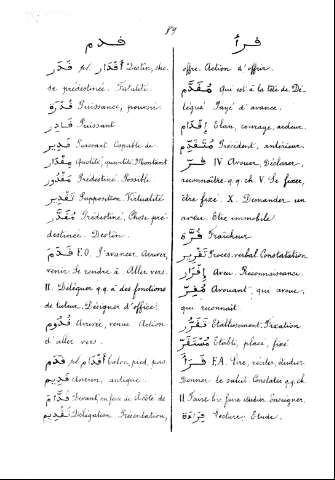 89
قدم
قَدَر pl. أَقْدَار Destin, cho-
se prédestinée. Fatalité.
قُدْرَة Puissance, pouvoir
قَادِر Puissant
قَدِير Puissant Capable de
مِقْدَار Qualité, quantité. Montant
مَقْدُور Prédestiné. Possible
تَقْدِير Supposition Virtualité
مُقَدَّر Prédestiné, Chose pré-
destinée. Destin.
قَدَمَ F.O. S'avancer. Arriver,
venir. Se rendre à Aller vers.
II. Déléguer q.q. à des fonctions
de tuteur. Désigner d'office.
قُدُوم Arrivée, venue Action
d'aller vers.
قَدَم pl. أَقْدَام Talon, pied, pas
قَدِيم Ancien, antique.
قُدَّامَ Devant, en face de À côté de
تَقْدِيم Délégation. Présentation,
قرأ
offre. Action d'offrir.
مُقَدَّم Qui est à la tête de. Dé-
légué Payé d'avance.
إِقْدَام Élan, courage, ardeur.
مُتَقَدِّم Précédent, antérieur.
قَرَّ IV Avouer, Déclarer,
reconnaître q.q.ch. V. Se fixer,
être fixé. X. Demander un
aveu. Être immobile
قُرَّة Fraîcheur
تَقْرِير Procès-verbal. Constatation
إِقْرَار Aveu. Reconnaissance.
مُقِرّ Avouant, qui avoue,
qui reconnaît
تَقَرُّر Établissement. Fixation
مُسْتَقَرّ Établi, place, fixé
قَرَأَ F.A. Lire, réciter, étudier
Donner le salut. Constater q.q.ch
II Faire lire faire étudier Enseigner.
قِرَاءَة Lecture. Étude.